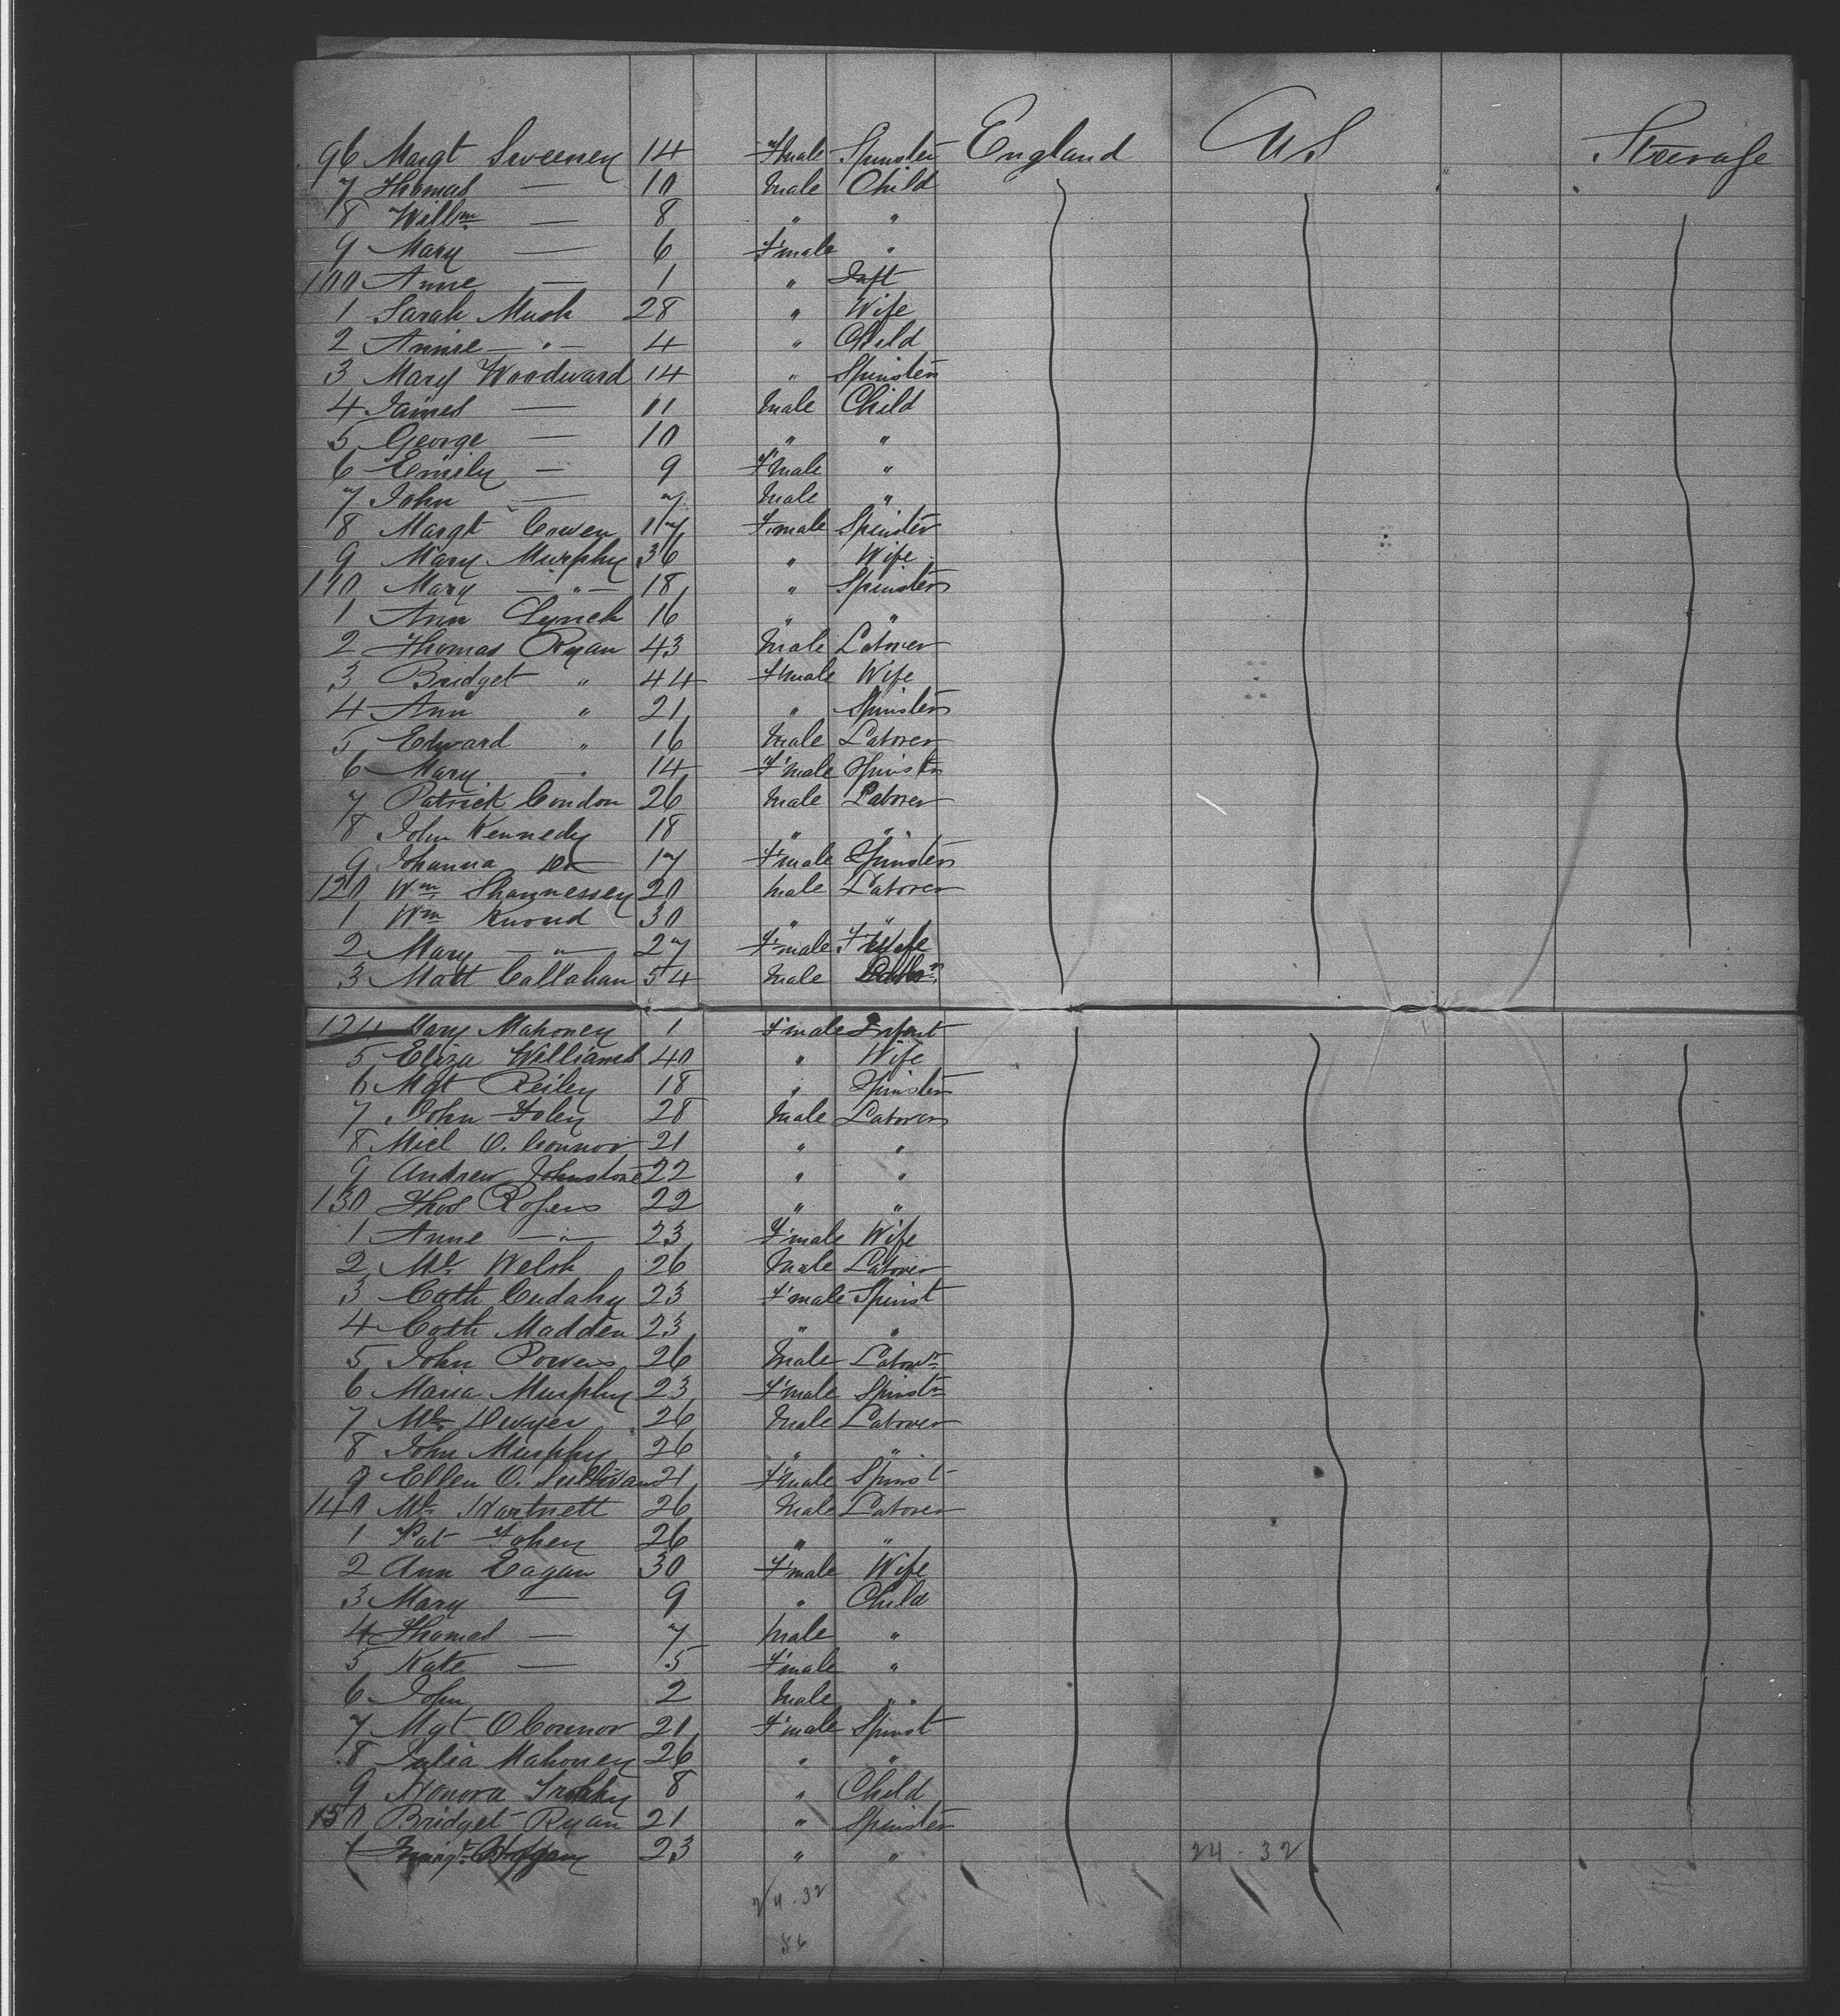 96 Margt Sweeney 14 F'male Spinster England U S Steerage
7 Thomas — 10 Male Child
8 Willm — 8 " "
9 Mary — 6 F'male "
100 Anne — 1 " Inft
1 Sarah Mush 28 " Wife
2 Annie — " — 4 " Child
3 Mary Woodward 14 " Spinster
4 James — 11 Male Child
5 George — 10 " "
6 Emily — 9 F'male "
7 John — 7 Male "
8 Margt Cowen 17 F'male Spinster
9 Mary Murphy 36 " Wife
110 Mary — " — 18 " Spinster
1 Ann Lynch 16 " "
2 Thomas Ryan 43 Male Laborer
3 Bridget " 44 F'male Wife
4 Ann " 21 " Spinster
5 Edward " 16 Male Laborer
6 Mary " 14 F'male Spinstr
7 Patrick Condon 26 Male Laborer
8 John Kennedy 18 " "
9 Johanna Do 17 F'male Spinster
120 Wm Shannessey 20 Male Laborer
1 Wm 30 " "
2 Mary — " — 27 F'male Wife
3 Matt Callahan 54 Male Labor
124 Mary Mahoney 1 F'male Infant
5 Eliza Williams 40 " Wife
6 Mgt Reiley 18 " Spinster
7 John Foley 28 Male Laborer
8 Micl O. Connor 21 " "
9 Andrew Johnstone 22 " "
130 Thos Rogers 22 " "
1 Anne — " — 23 F'male Wife
2 Ml. Welsh 26 Male Laborer
3 Cath Cudahy 23 F'male Spinst
4 Cath Madden 23 " "
5 John Powers 26 Male Laborr
6 Maria Murphy 23 F'male Spinstr
7 Ml. Dwyer 26 Male Laborer
8 John Murphy 26 " "
9 Ellen O. Sullivan 21 F'male Spinst
140 Ml. Hartnett 26 Male Laborer
1 Pat Fohey 26 " "
2 Ann Eagan 30 F'male Wife
3 Mary — 9 " Child
4 Thomas — 7 Male "
5 Kate — 5 F'male "
6 John 2 Male "
7 Mgt OConnor 21 F'male Spinst
8 Julia Mahoney 26 " "
9 Honora 8 " Child
150 Bridget Ryan 21 " Spinster
1 Margt 23 " " 24 - 32
24 - 32